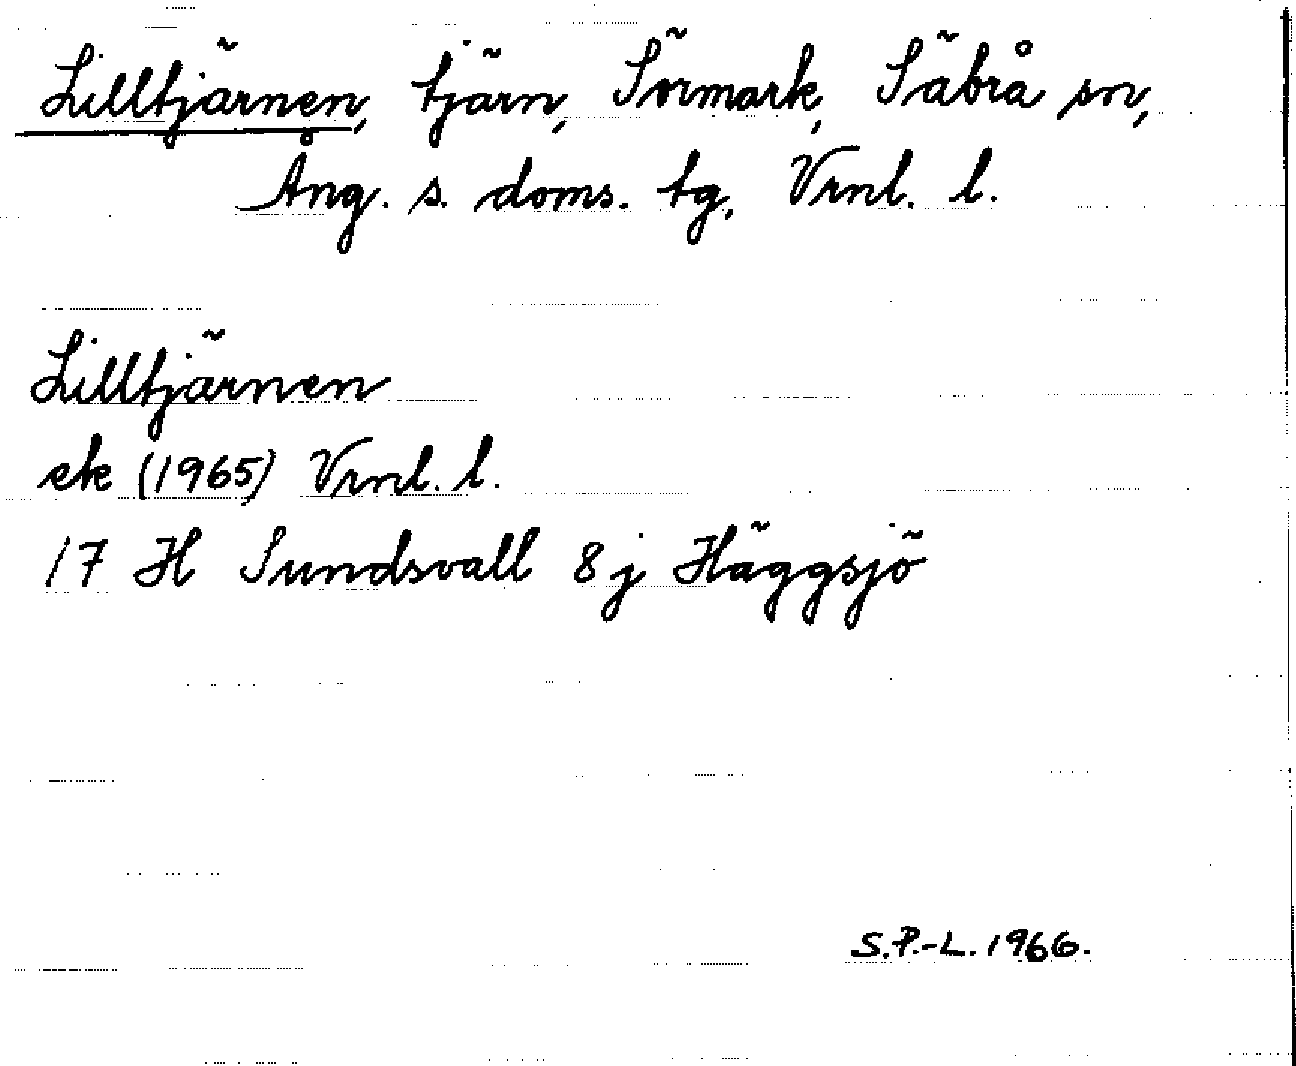 Lilltjärnen, tjärn, Sörmark, Säbrå sn,
Ång. s. doms. tg, Vrnl. l.
Lilltjärnen
ek (1965) Vrnl. l.
17 H Sundsvall 8 j Häggsjö
S.P.-L. 1966.